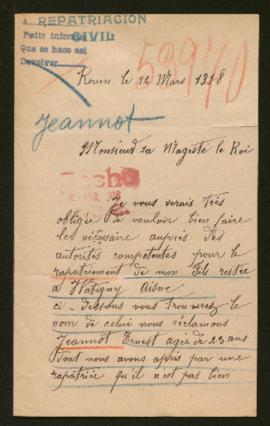 A REPATRIACION
CIVIL
Pedir inform
Que se haga así
Devolver
53940
Rouen le 12 Mars 1918
Jeannot
Monsieur sa Magisté le Roi
Hecho
Je vous serais très
obligée de vouloir bien faire
les nécessaire auprès des
autorités compétentes pour le
rapatriement de mon fils restée
à Hatigny Aisne
ci-dessous vous trouverez le
nom de celui nous réclamons
Jeannot Ernest agée de 23 ans
dont nous avons appris par une
rapatriée qu'il n'est pas bien